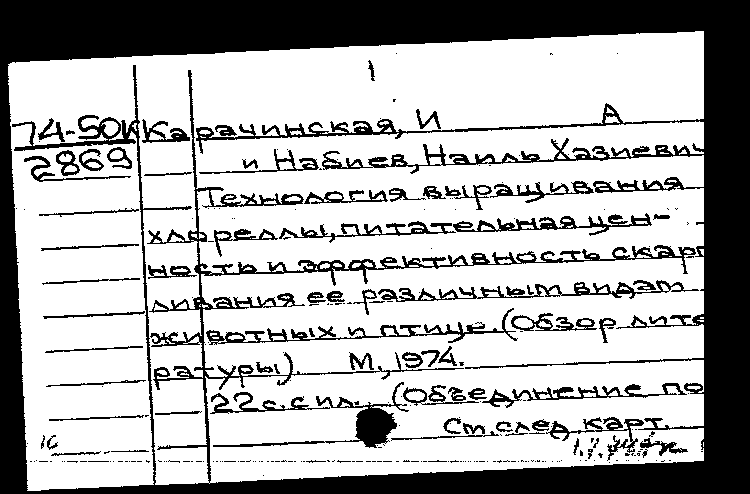 1
74-50К Карачинская, И А
2869 и Набиев, Наиль Хазиевич
Технология выращивания
хлореллы, питательная цен-
ность и эффективность скарм
ливания ее различным видам
животных и птице. (Обзор лите
ратуры). М., 1974.
22 с. с ил. (Объединение по
См. след карт.
16